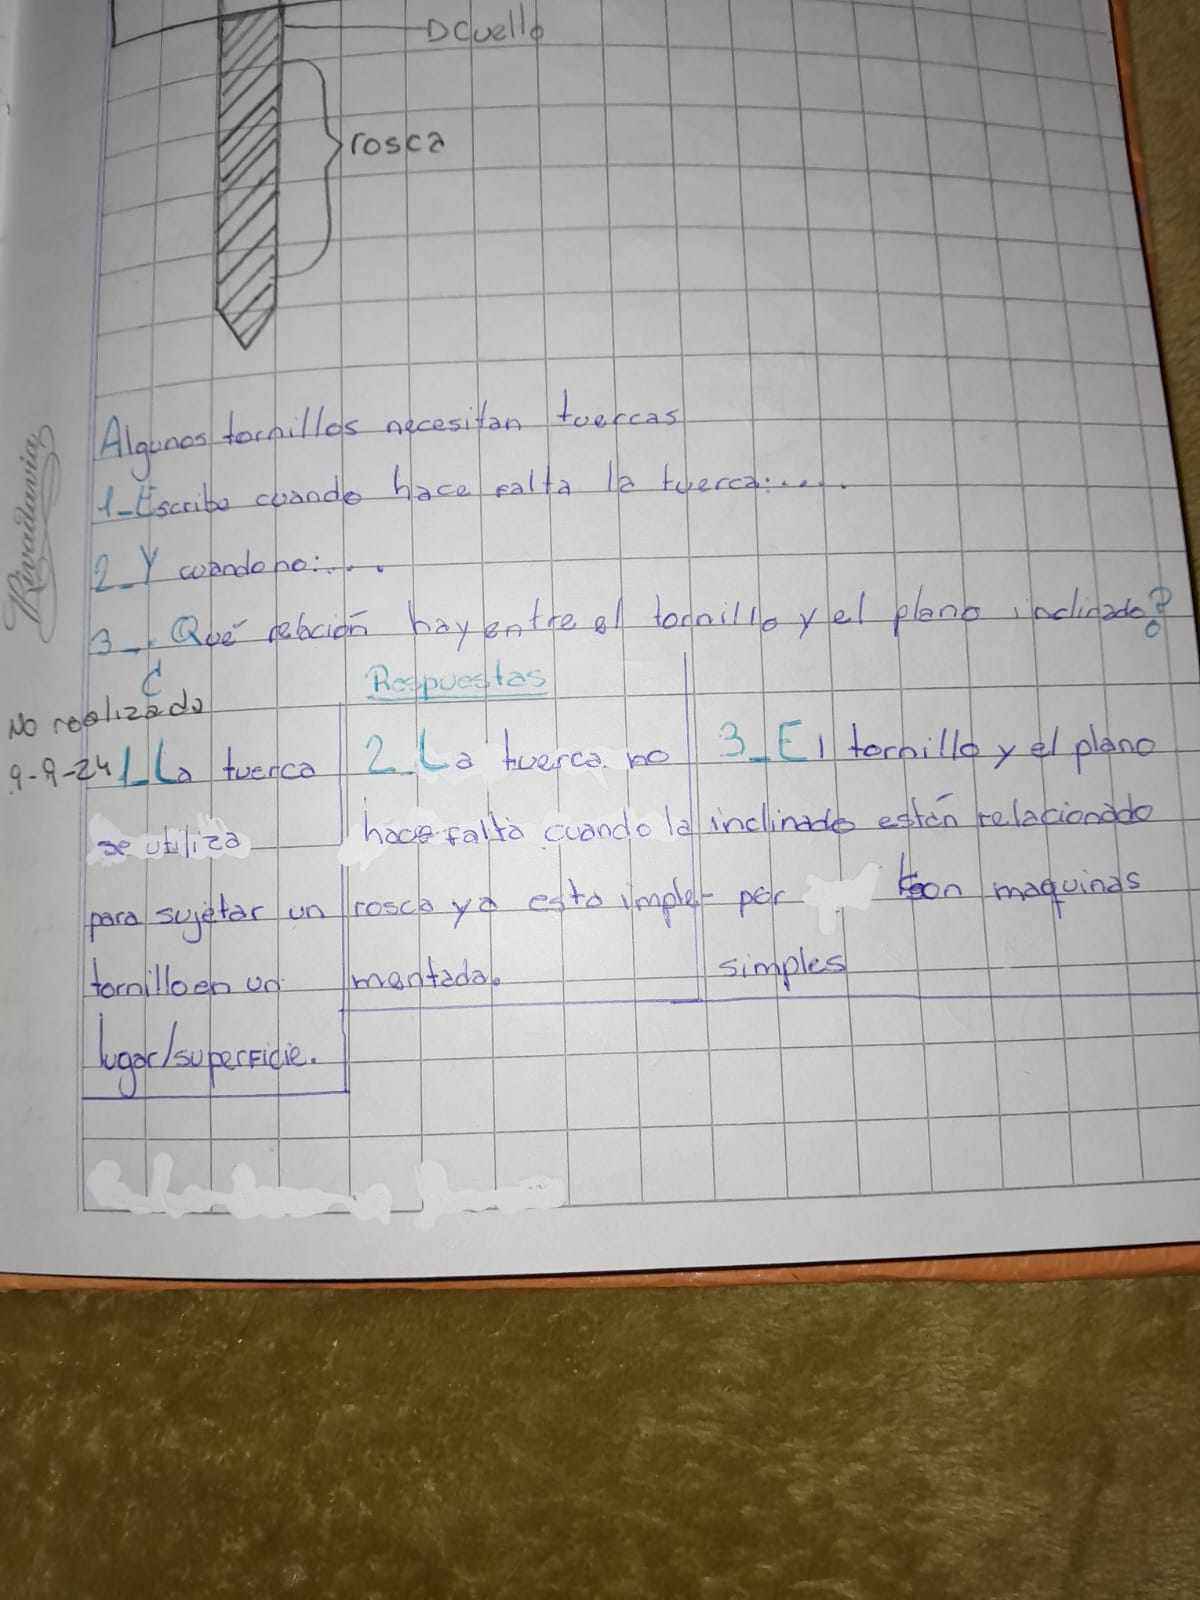 DCuello
rosca
Rivadavia
Algunos tornillos necesitan tuercas
1_Escribe cuando hace falta la tuerca:....
2_Y cuando no:....
3_. Qué relación hay entre el tornillo y el plano inclinado?
C
No realizado
9-9-24
Respuestas
1_La tuerca
se utiliza
para sujetar un
tornillo en un
lugar/superficie.
2_La tuerca no
hace falta cuando la
rosca ya esta imple-
mentada.
3_El tornillo y el plano
inclinado están relacionado
por son maquinas
simples